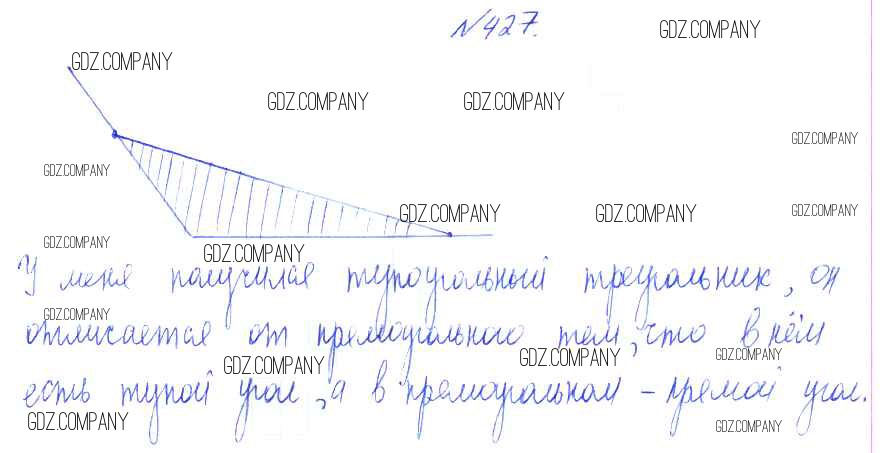 №427.
GDZ.COMPANY
GDZ.COMPANY
GDZ.COMPANY
GDZ.COMPANY
GDZ.COMPANY
GDZ.COMPANY
GDZ.COMPANY
GDZ.COMPANY
GDZ.COMPANY
GDZ.COMPANY
GDZ.COMPANY
У меня получился тупоугольный треугольник, он
GDZ.COMPANY
отличается от прямоугольного тем, что в нём
GDZ.COMPANY
GDZ.COMPANY
GDZ.COMPANY
есть тупой угол, а в прямоугольном - прямой угол.
GDZ.COMPANY
GDZ.COMPANY